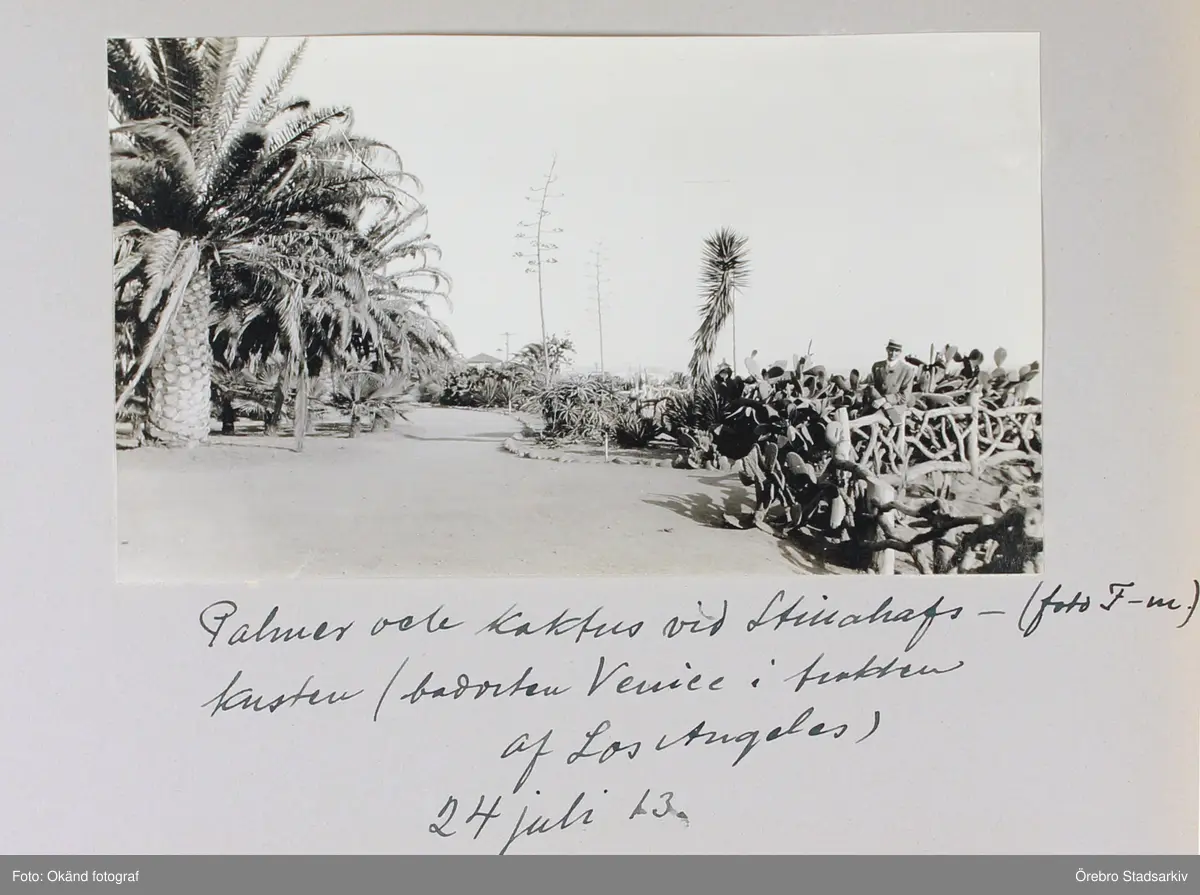 Palmer och kaktus vid Stillahafs- (foto F-m.)
kusten (badorten Venice i trakten
af Los Angeles)
24 juli 13.
Foto: Okänd fotograf
Örebro Stadsarkiv